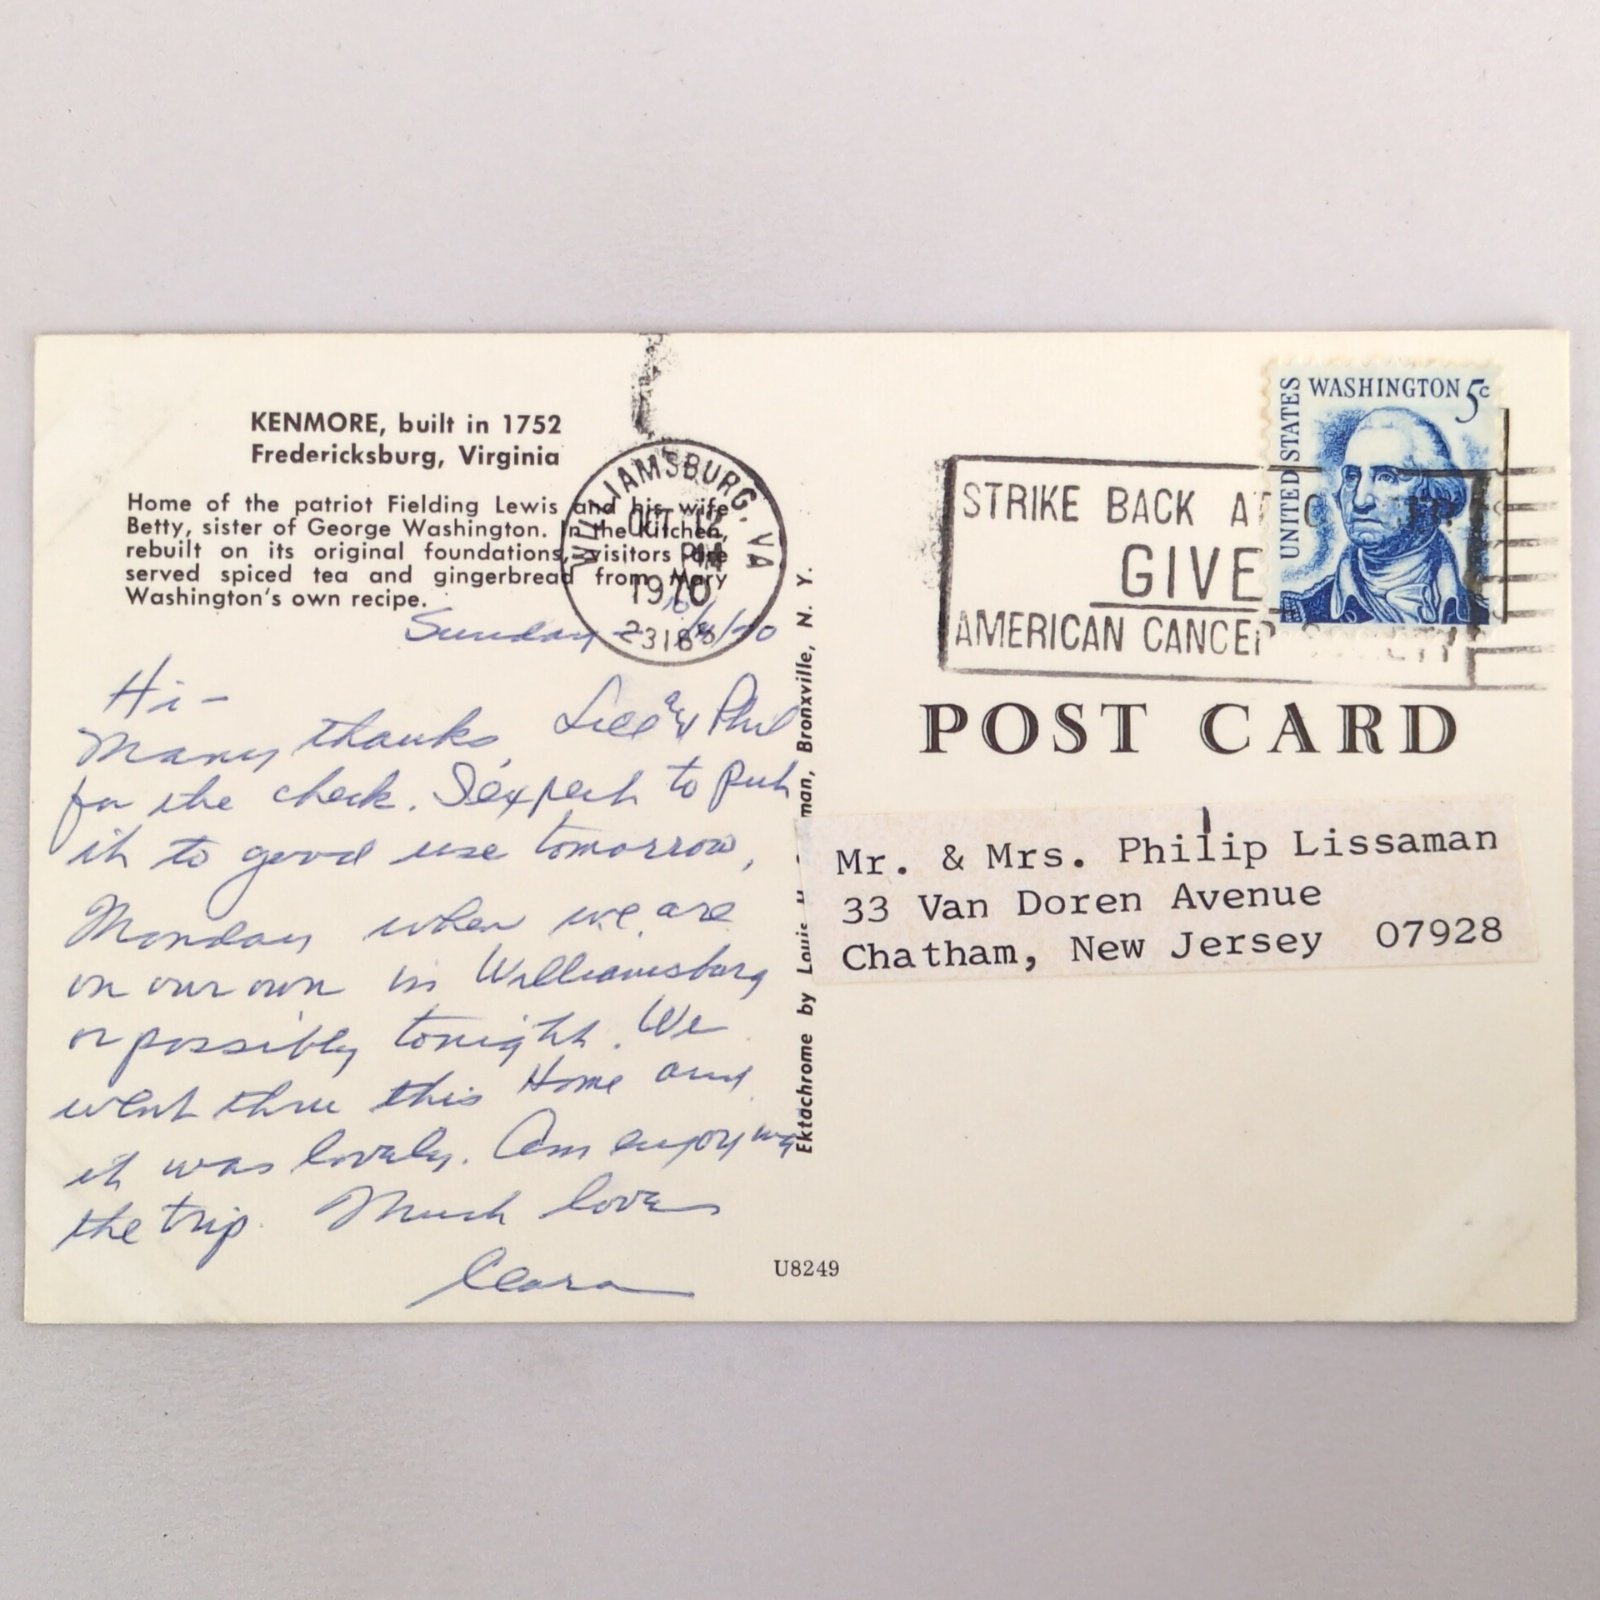 KENMORE, built in 1752
Fredericksburg, Virginia
Home of the patriot Fielding Lewis and his wife
Betty, sister of George Washington. In the Kitchen,
rebuilt on its original foundations, visitors are
served spiced tea and gingerbread from Mary
Washington's own recipe.
WILLIAMSBURG, VA
OCT 12
PM
1970
23185
Sunday
Hi-
Many thanks, Lill and Phil
for the check. I expect to put
it to good use tomorrow,
Monday when we are
on our own in Williamsburg
or possibly tonight. We
went thru this Home and
it was lovely. Am enjoying
the trip. Much love
Clara
Ektachrome by Louis man, Bronxville, N. Y.
U8249
UNITED STATES
WASHINGTON 5c
STRIKE BACK AT
GIVE
AMERICAN CANCER SOCIETY
POST CARD
Mr. & Mrs. Philip Lissaman
33 Van Doren Avenue
Chatham, New Jersey 07928